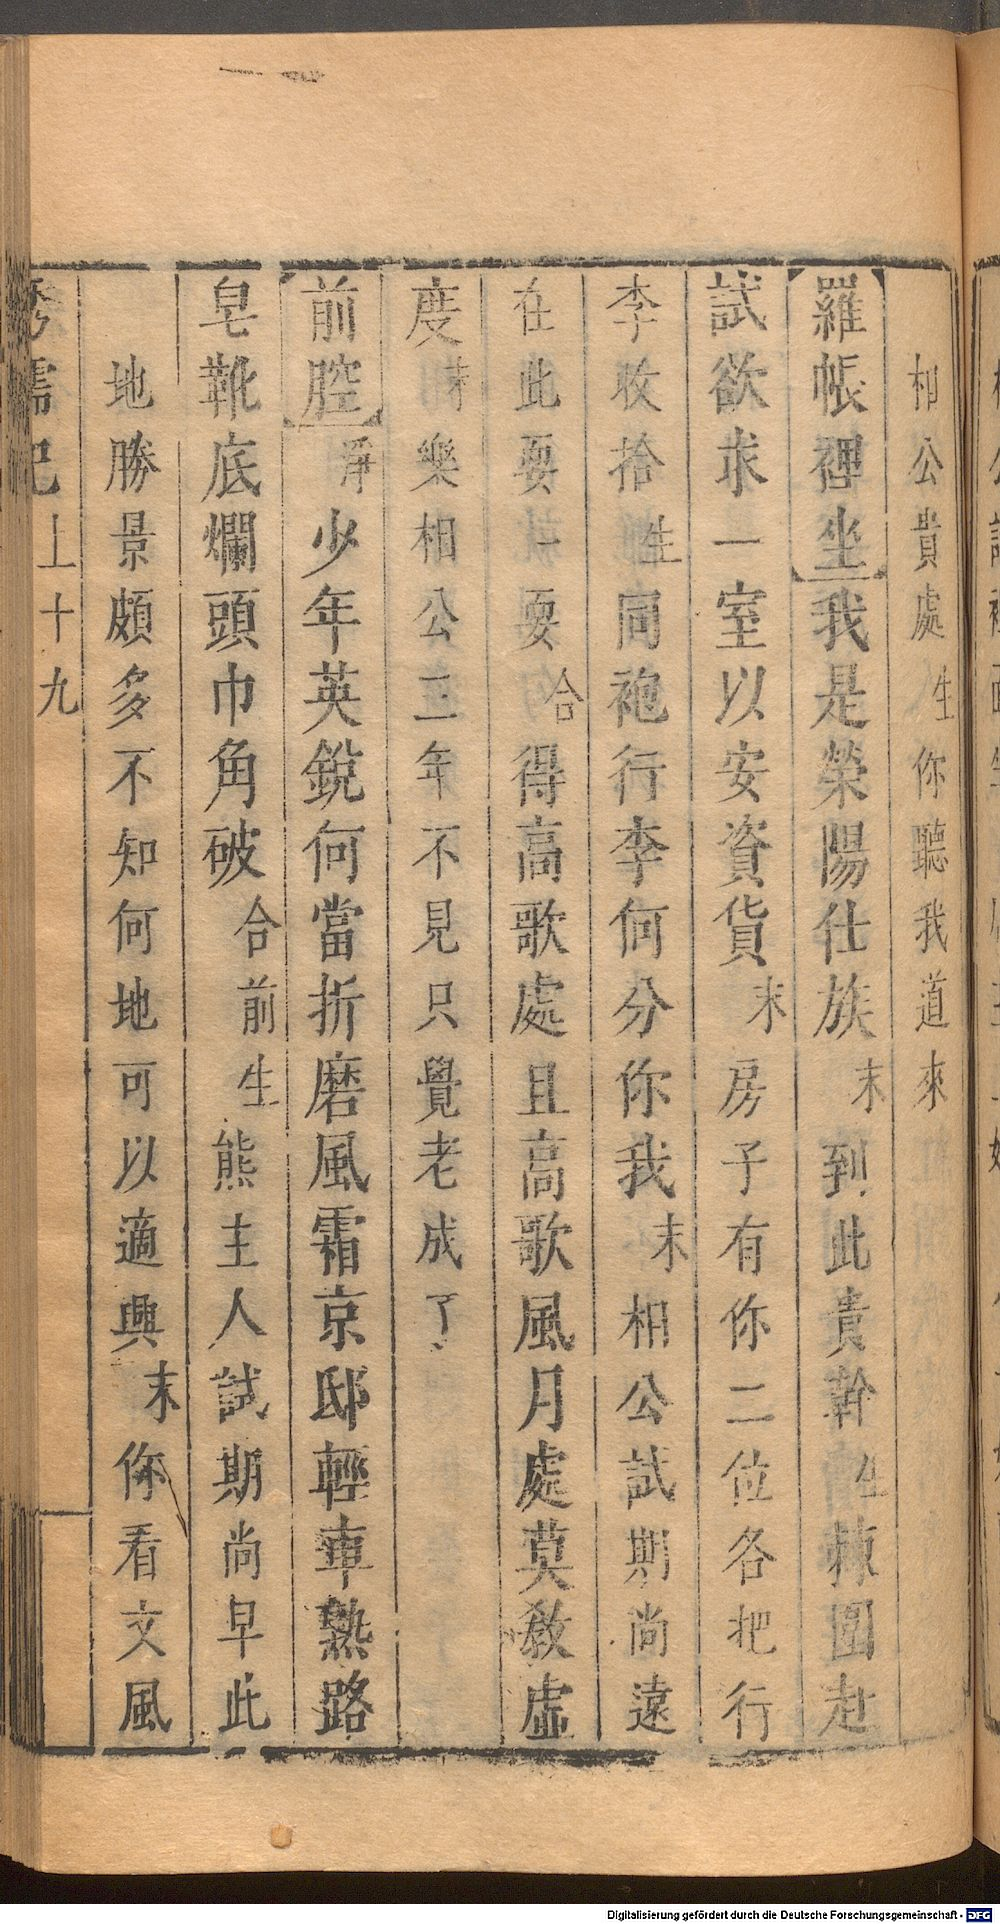 相公貴處生你聽我道來
羅帳裡坐我是榮陽仕族末到此貴幹生棘圍赴
試欲求一室以安資貨末房子有你二位各把行
李收拾生同袍行李何分你我末相公試期尚遠
在此耍一耍合得高歌處且高歌風月處莫教虛
度末樂相公三年不見只覺老成了
前腔淨少年英銳何當折磨風霜京邸輕車熟路
皂靴底爛頭巾角破合前生熊主人試期尚早此
地勝景頗多不知何地可以適興末你看文風
繡襦記上十九
Digitalisierung gefördert durch die Deutsche Forschungsgemeinschaft - DFG